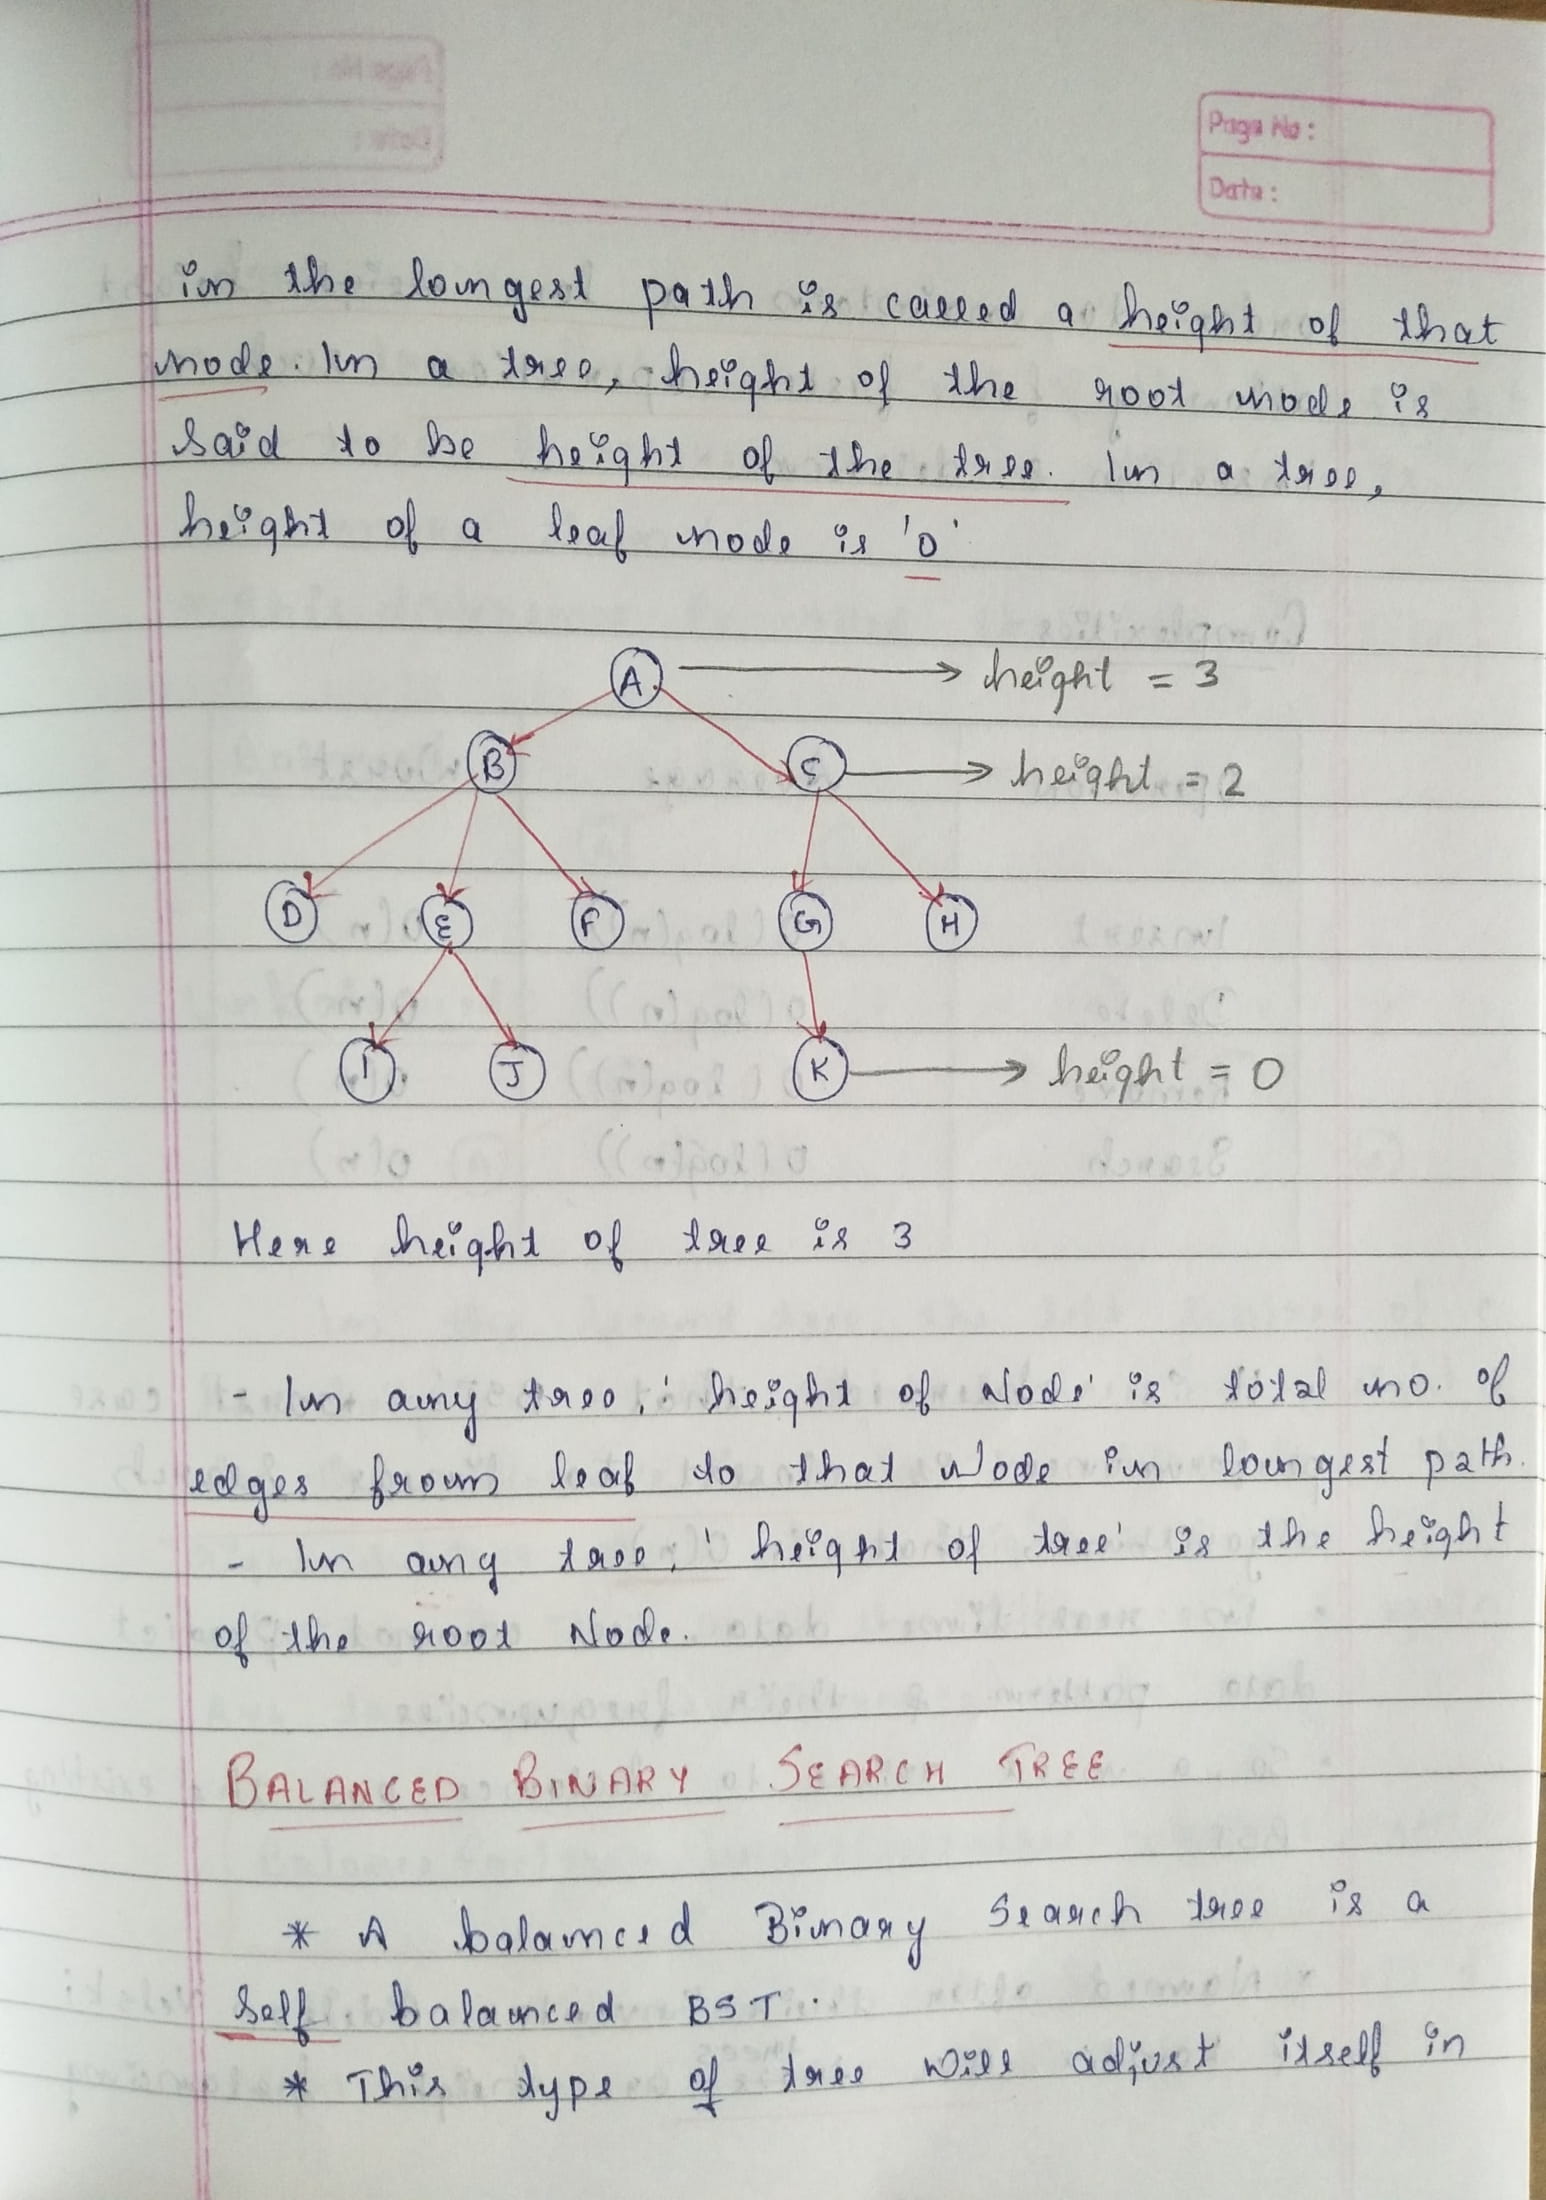 Page No :
Date :
in the longest path is called a height of that
node. In a tree, height of the root node is
said to be height of the tree. In a tree,
height of a leaf node is '0'
A height = 3
B C height = 2
D E F G H
I J K height = 0
Here height of tree is 3
- In any tree, 'height of Node' is total no. of
edges from leaf to that Node in longest path.
- In any tree, 'height of tree' is the height
of the root Node.
BALANCED BINARY SEARCH TREE
* A balanced Binary Search tree is a
self balanced BST.
* This type of tree will adjust itself in